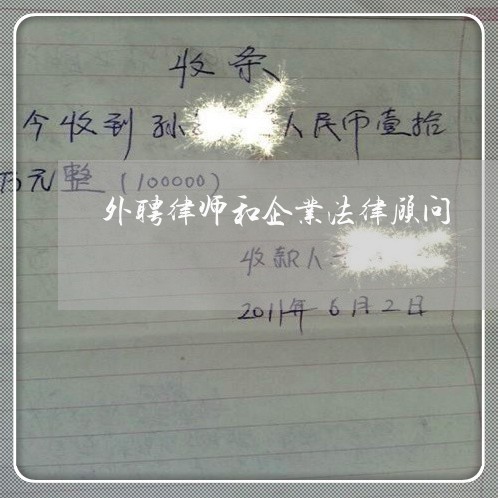 收条
今收到孙 人民币壹拾
万元整（100000）
外聘律师和企業法律顾问
收款人
2011年6月2日